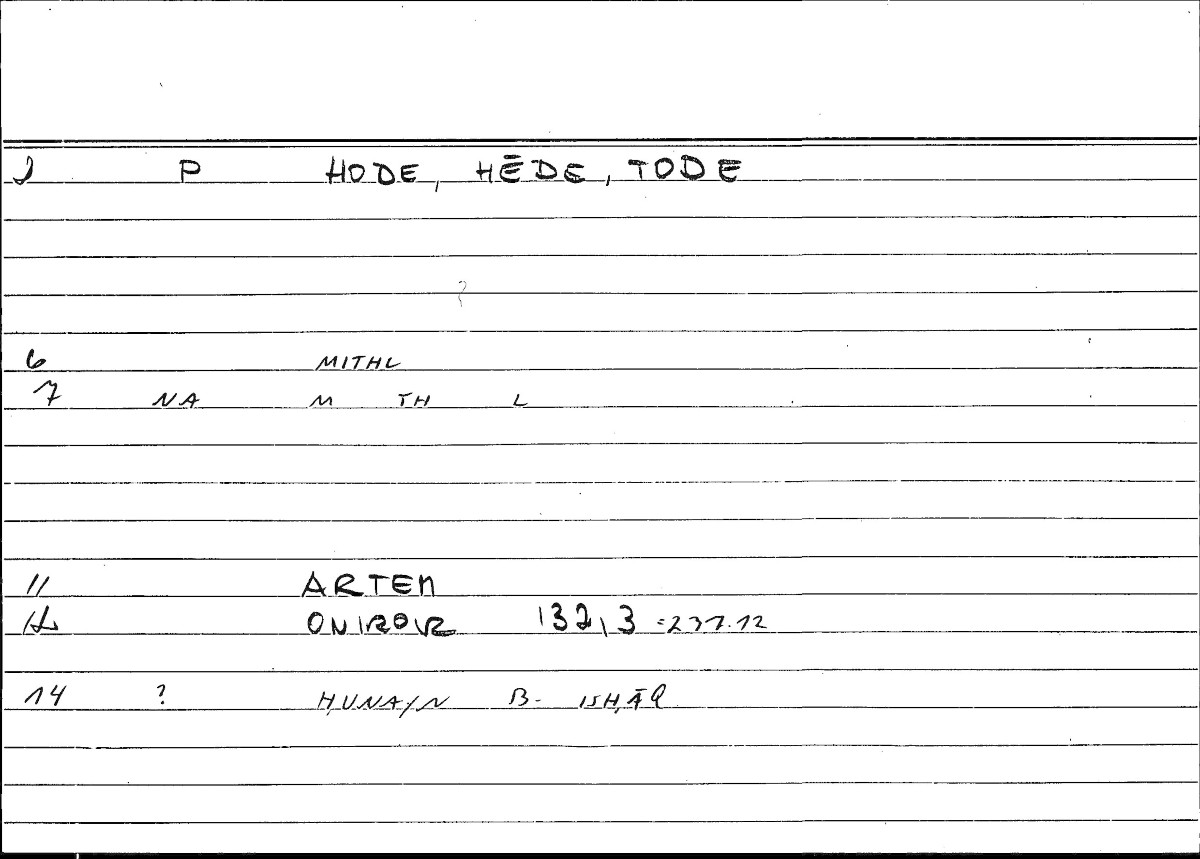 2 P HODE, HĒDE, TODE
?
6 MITHL
7 NA M TH L
11 ARTEM
12 ONIROKR 132,3 =237.12
14 ? ḤUNAYN B. ISḤĀQ